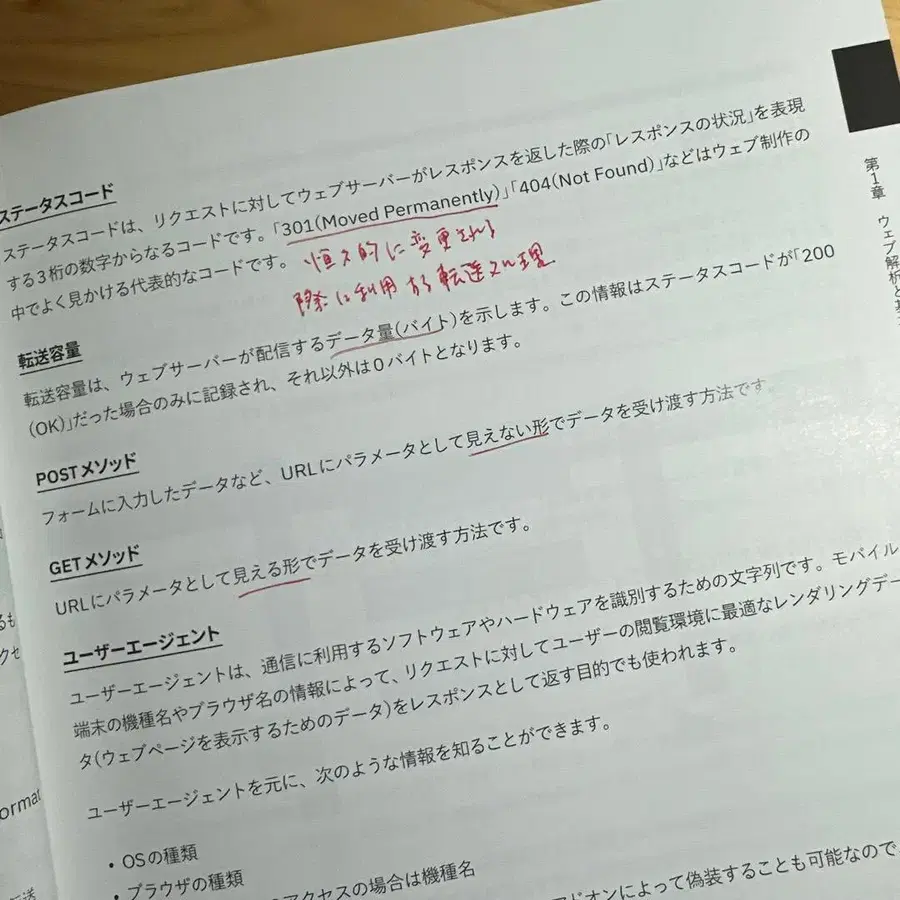 ステータスコード
ステータスコードは、リクエストに対してウェブサーバーがレスポンスを返した際の「レスポンスの状況」を表現
する3桁の数字からなるコードです。「301(Moved Permanently)」「404(Not Found)」などはウェブ制作の
中でよく見かける代表的なコードです。
恒久的に変更される
際に利用する転送処理
転送容量
転送容量は、ウェブサーバーが配信するデータ量(バイト)を示します。この情報はステータスコードが「200
(OK)」だった場合のみに記録され、それ以外は0バイトとなります。
POSTメソッド
フォームに入力したデータなど、URLにパラメータとして見えない形でデータを受け渡す方法です。
GETメソッド
URLにパラメータとして見える形でデータを受け渡す方法です。
ユーザーエージェント
ユーザーエージェントは、通信に利用するソフトウェアやハードウェアを識別するための文字列です。モバイル
端末の機種名やブラウザ名の情報によって、リクエストに対してユーザーの閲覧環境に最適なレンダリングデー
タ(ウェブページを表示するためのデータ)をレスポンスとして返す目的でも使われます。
ユーザーエージェントを元に、次のような情報を知ることができます。
・OSの種類
・ブラウザの種類
アクセスの場合は機種名
ドオンによって偽装することも可能なので
第1章 ウェブ解析と基
るも
クセ
ormat
転送